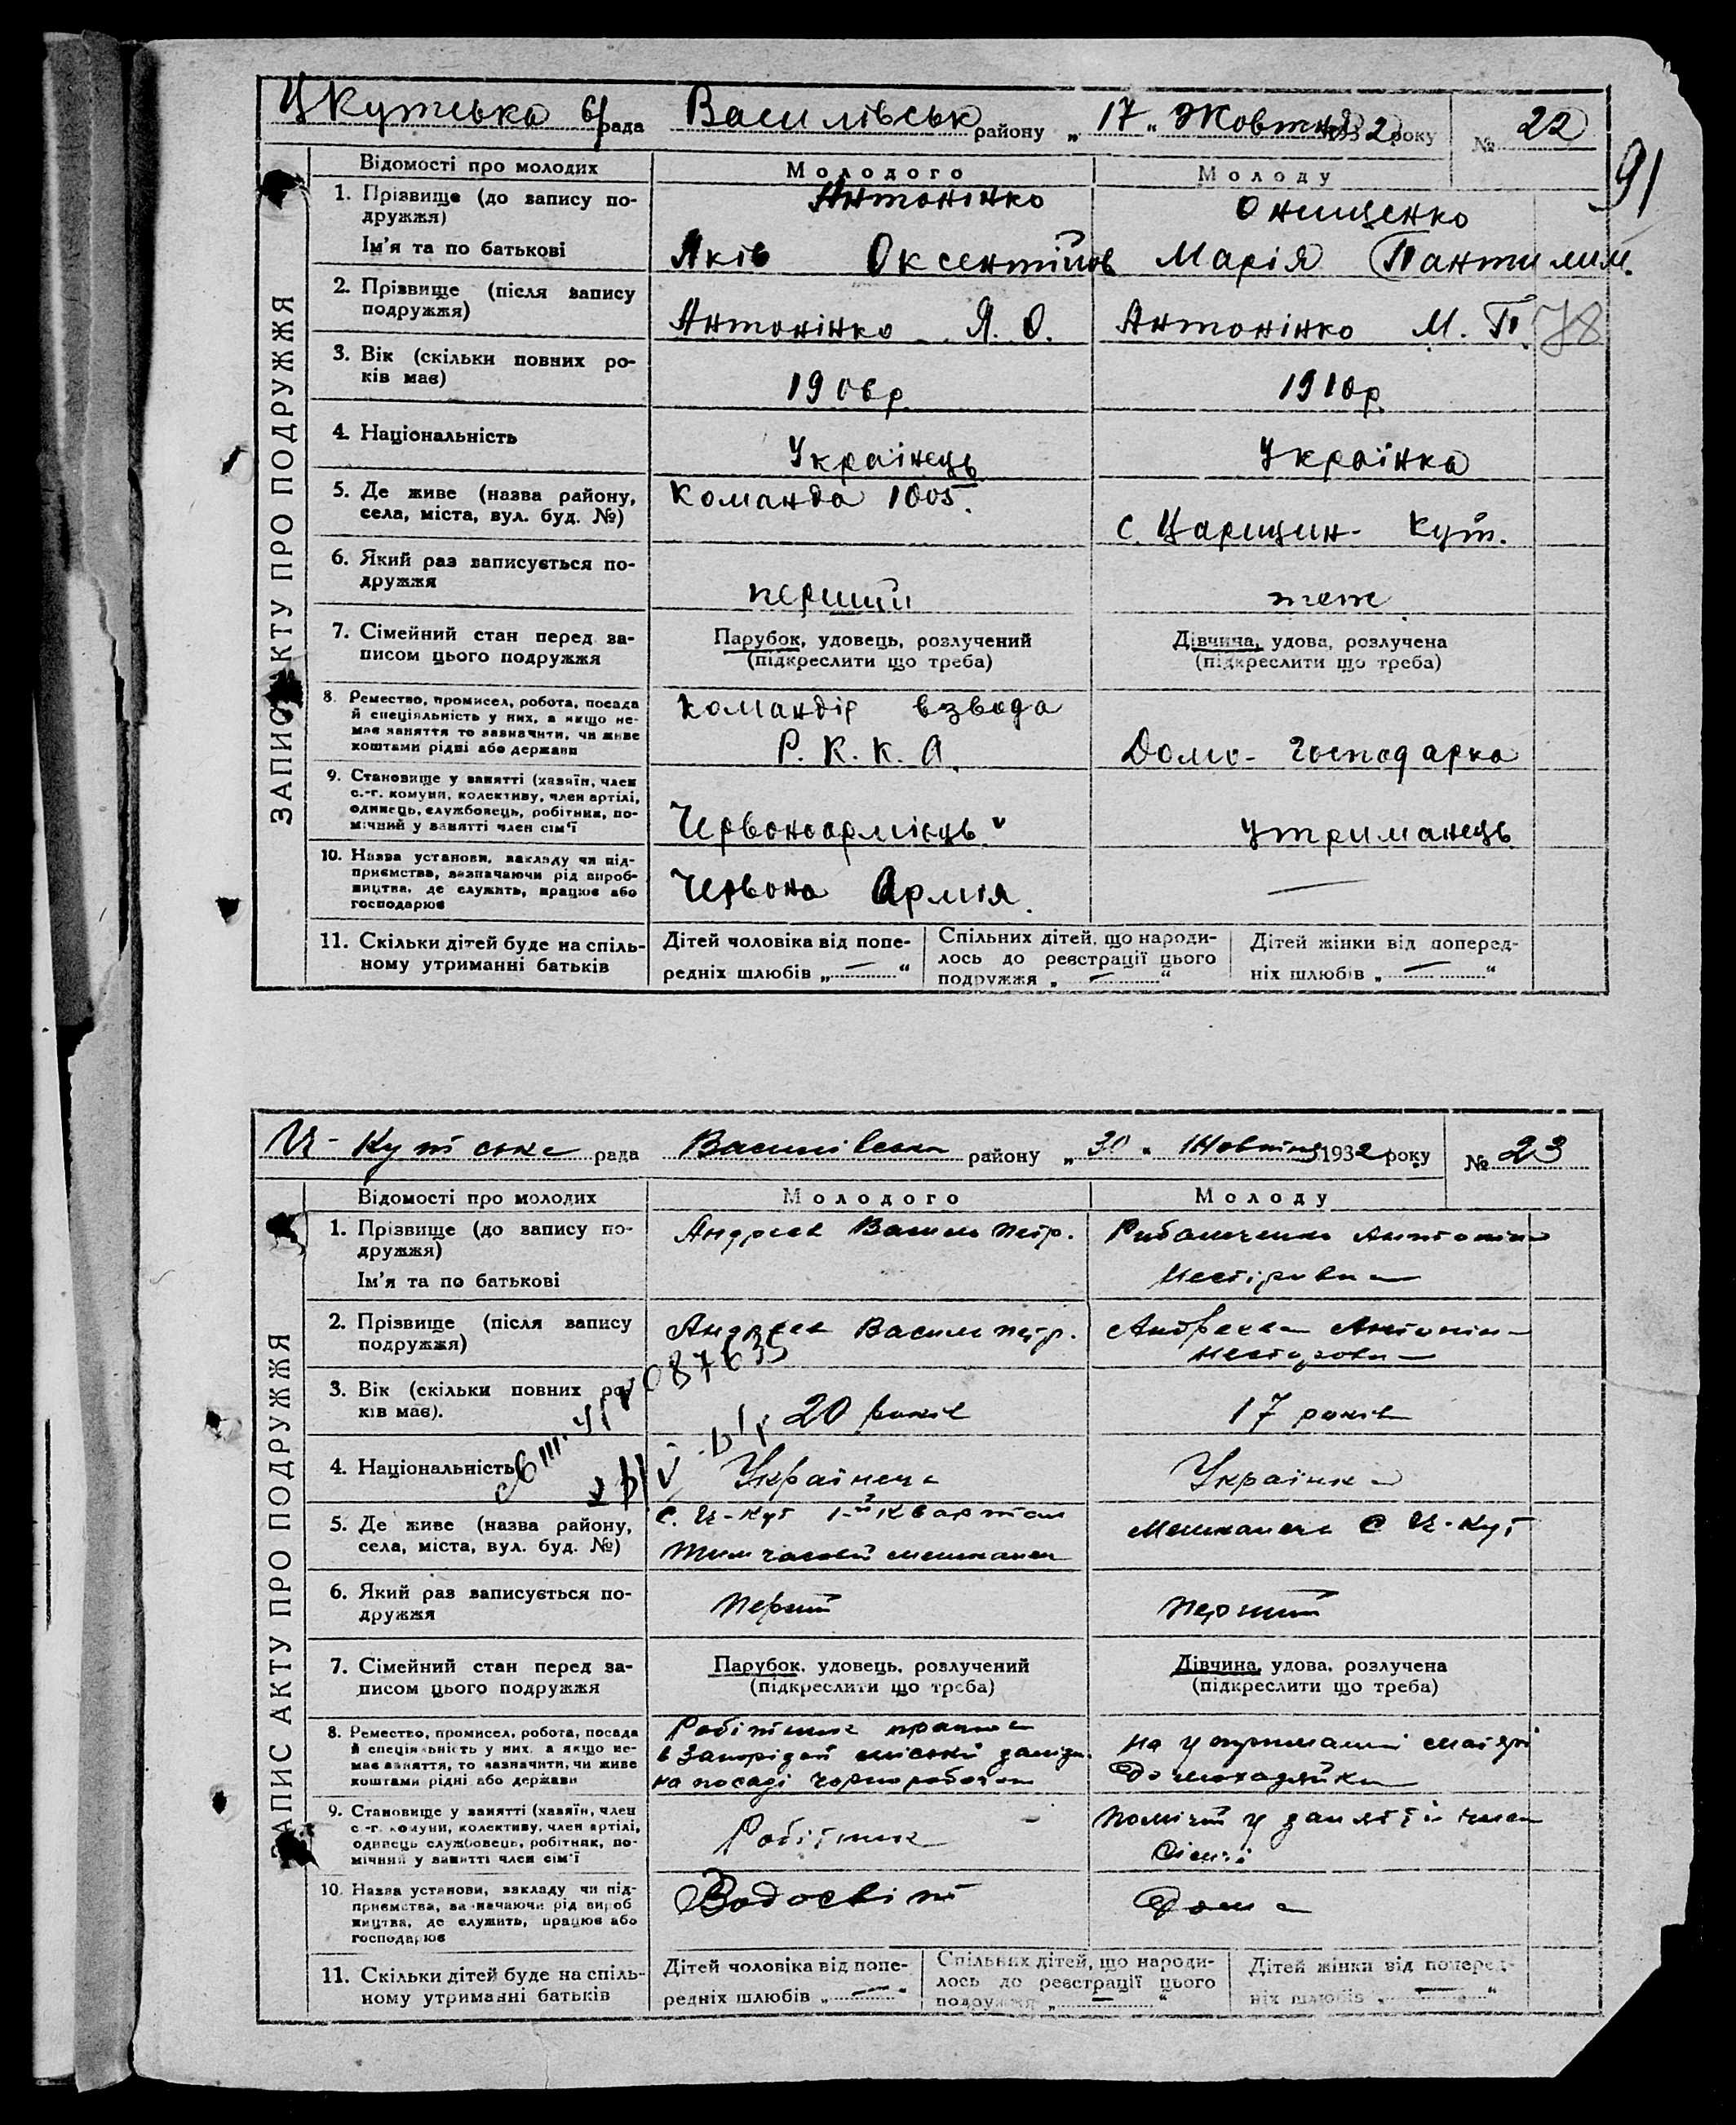 Цкутська с/рада Василівськ району „17" Жовтня 1932 року № 22
91
Відомості про молодих Молодого Молоду
ЗАПИС АКТУ ПРО ПОДРУЖЖЯ
1. Прізвище (до запису по-
дружжя)
Антонінко Онищенко
Ім'я та по батькові
Яків Оксентійов Марія Пантилим.
2. Прізвище (після запису
подружжя)
Антонінко Я. О. Антонінко М. П. 78
3. Вік (скільки повних ро-
ків має)
1906р. 1910р.
4. Національність
Українець Українка
5. Де живе (назва району,
села, міста, вул. буд. №)
Команда 1005. с. Царицин- Кут.
6. Який раз записується по-
дружжя
перший теж
7. Сімейний стан перед за-
писом цього подружжя
Парубок, удовець, розлучений Дівчина, удова, розлучена
(підкреслити що треба) (підкреслити що треба)
8. Ремество, промисел, робота, посада
й спеціяльність у них, а якщо не-
має заняття то зазначити, чи живе
коштами рідні або держави
командір взвода
Р. К. К. А. Домо- господарка
9. Становище у занятті (хазяїн, член
с.-г. комуни, колективу, член артілі,
одинець, службовець, робітник, по-
мічний у занятті член сім'ї
Червоноармієць Утриманець
10. Назва установи, закладу чи під-
приємства, зазначаючи рід вироб-
ництва, де служить, працює або
господарює
Червона Армія.
11. Скільки дітей буде на спіль-
ному утриманні батьків
Дітей чоловіка від попе-
редніх шлюбів „—"
Спільних дітей, що народи-
лось до реєстрації цього
подружжя „—"
Дітей жінки від поперед-
ніх шлюбів „—"
Ц- Кутське рада Василівськ району „30" Жовтня 1932 року № 23
Відомості про молодих Молодого Молоду
ЗАПИС АКТУ ПРО ПОДРУЖЖЯ
1. Прізвище (до запису по-
дружжя)
Ім'я та по батькові
Андреєв Василь Петр. Антоніна
Нестіровна
2. Прізвище (після запису
подружжя)
Андреєв Василь петр. Андреєва Антоніна
Нестіровна
087635
3. Вік (скільки повних ро-
ків має).
20 років 17 років
4. Національність
Українець Українка
5. Де живе (назва району,
села, міста, вул. буд. №)
с. Ц-Кут 1-й квартал
тимчасовий мешканець
Мешканець с Ц-Кут
6. Який раз записується по-
дружжя
перший перший
7. Сімейний стан перед за-
писом цього подружжя
Парубок, удовець, розлучений Дівчина, удова, розлучена
(підкреслити що треба) (підкреслити що треба)
8. Ремество, промисел, робота, посада
й спеціяльність у них, а якщо не-
має заняття, то зазначити, чи живе
коштами рідні або держави
Робітник працює
в міській
на посаді чорноробочим
на утриманні матері
Домохазяйка
9. Становище у занятті (хазяїн, член
с.-г. комуни, колективу, член артілі,
одинець службовець, робітник, по-
мічний у занятті член сім'ї
Робітник
помічний у занятті член
сім'ї
10. Назва установи, закладу чи під-
приємства, зазначаючи рід вироб
ництва, де служить, працює або
господарює
Водосвіт Дома
11. Скільки дітей буде на спіль-
ному утриманні батьків
Дітей чоловіка від попе-
редніх шлюбів „—"
Спільних дітей, що народи-
лось до реєстрації цього
подружжя „—"
Дітей жінки від поперед-
ніх шлюбів „—"